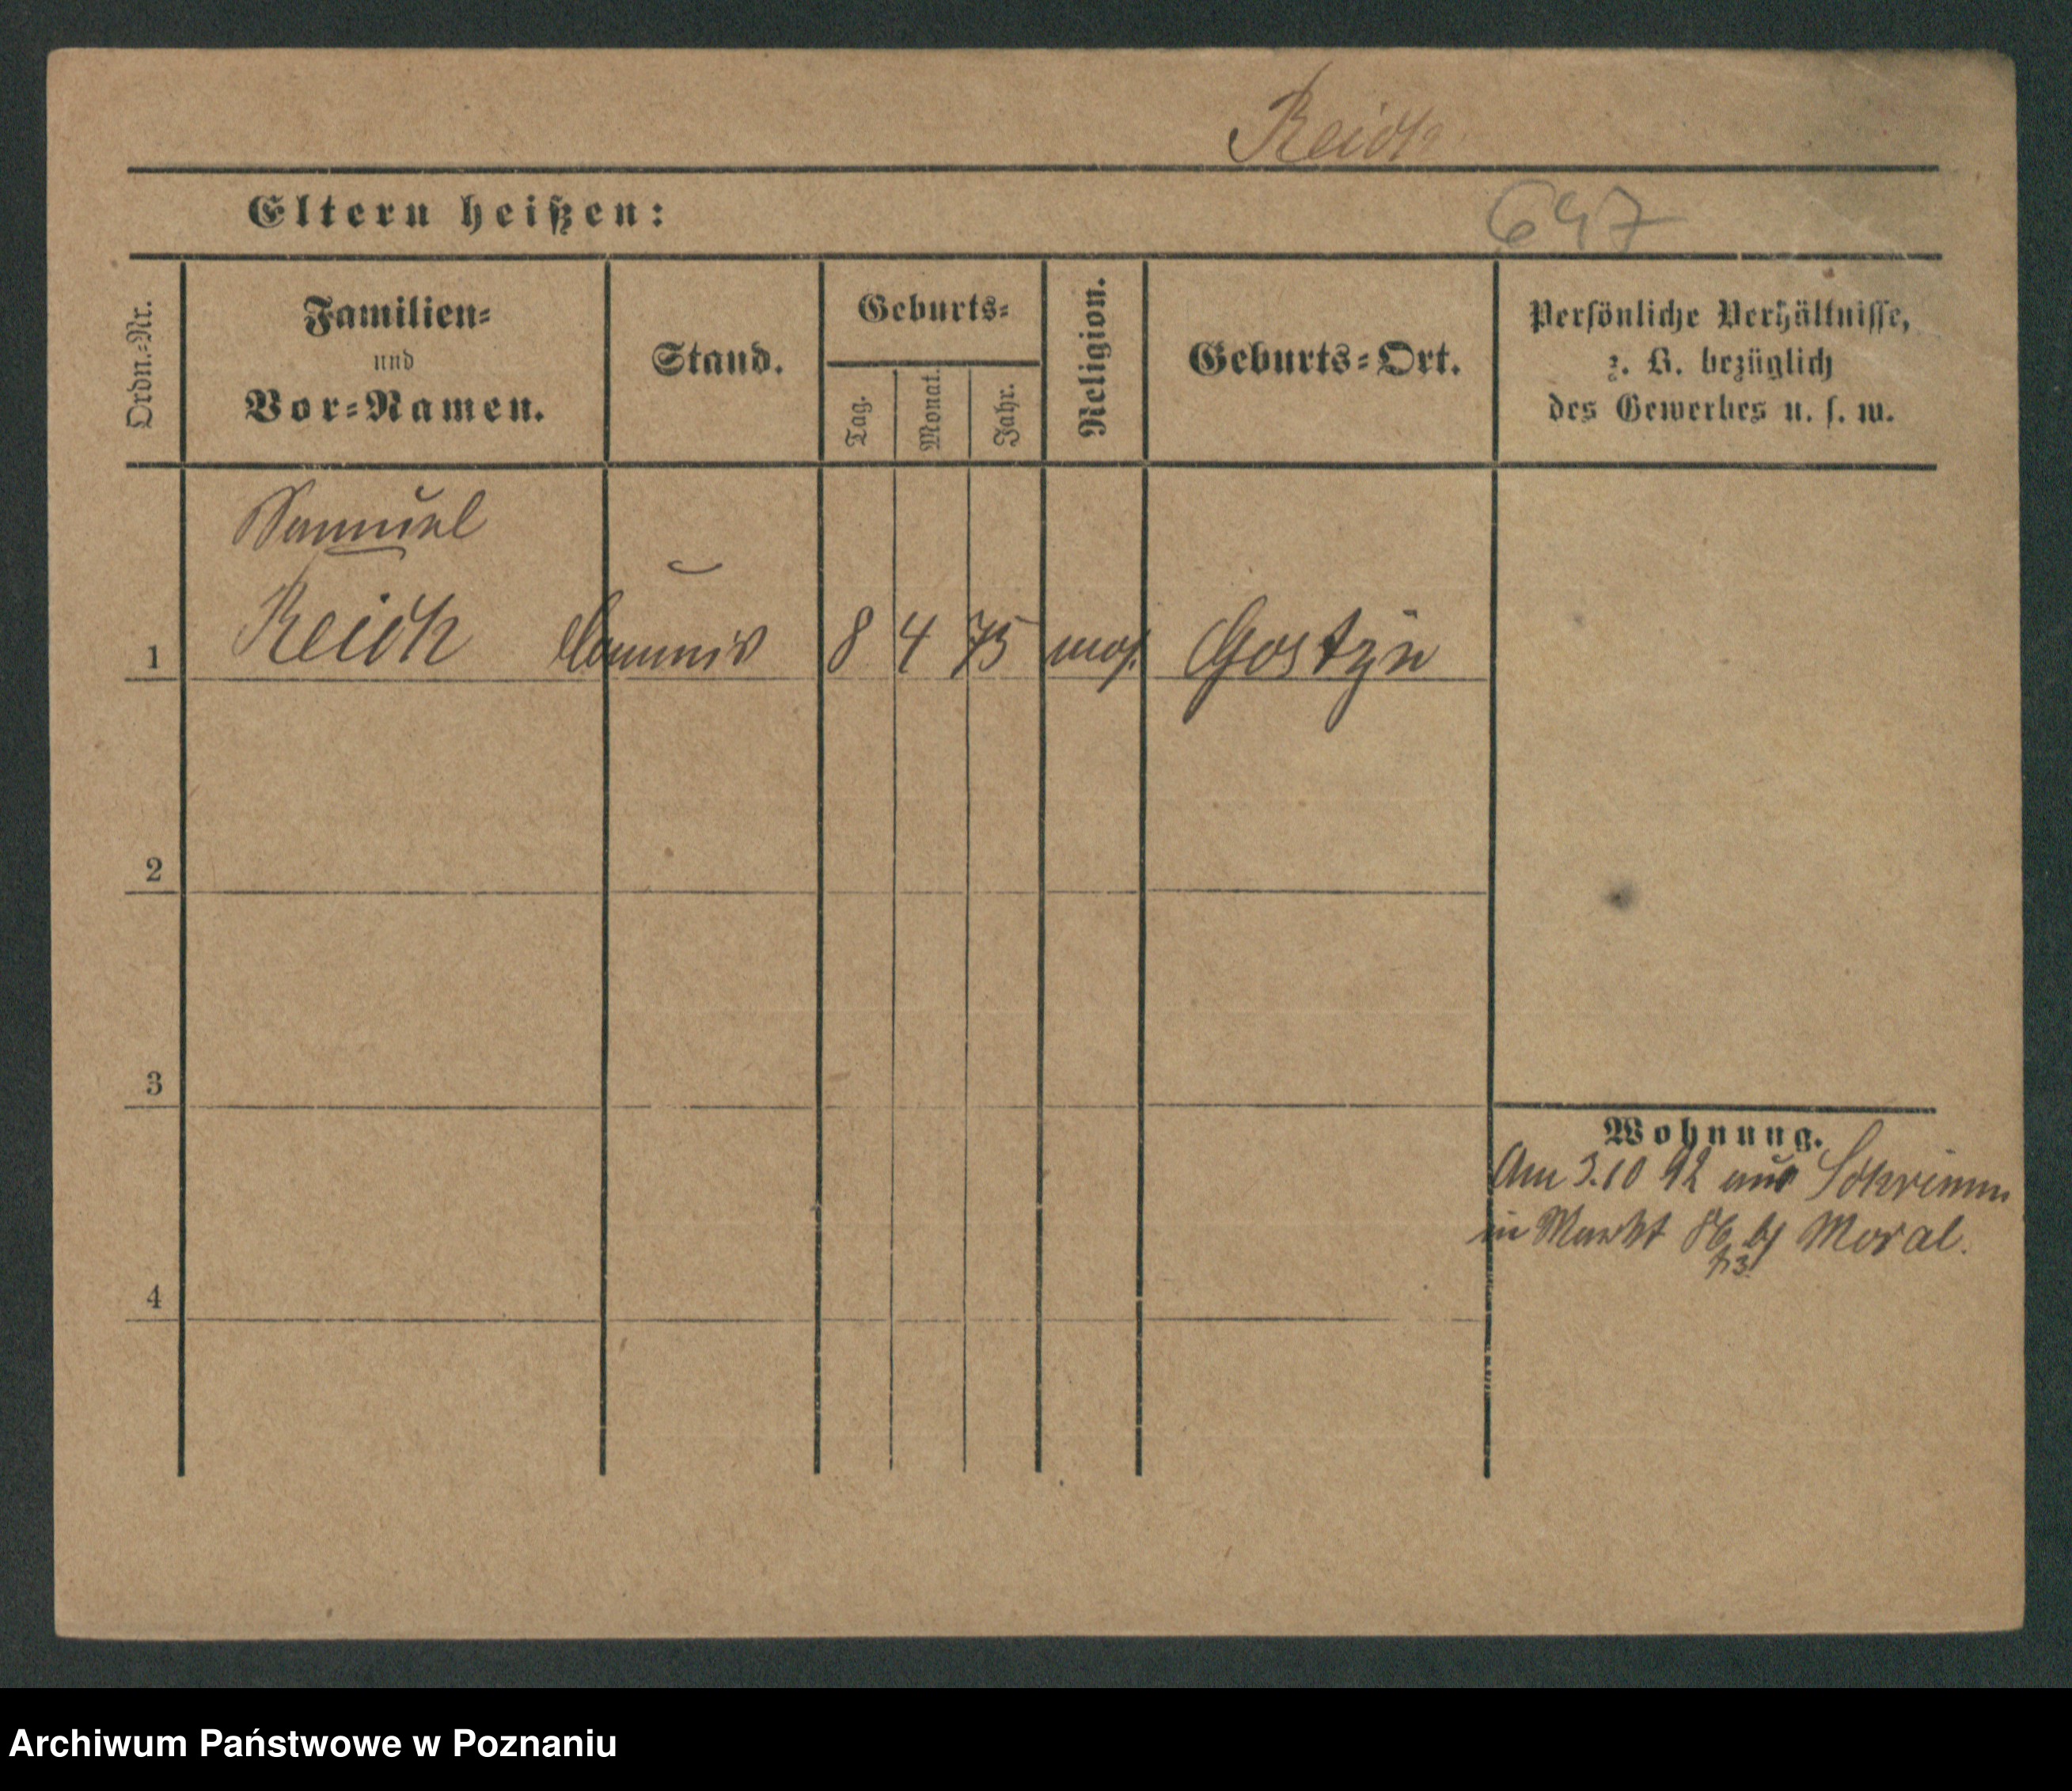 Reich
Eltern heißen:
647
Ordn.-Nr.
Familien-
und
Vor-Namen.
Stand.
Geburts-
Tag.
Monat.
Jahr.
Religion.
Geburts-Ort.
Persönliche Verhältnisse,
z. B. bezüglich
des Gewerbes u. s. w.
Samuel
1 Reich Commis 8 4 75 mos. Gostyn
2
3
Wohnung.
Am 3.10 92 aus Schrimm
in Markt 86 bj Moral.
4
Archiwum Państwowe w Poznaniu